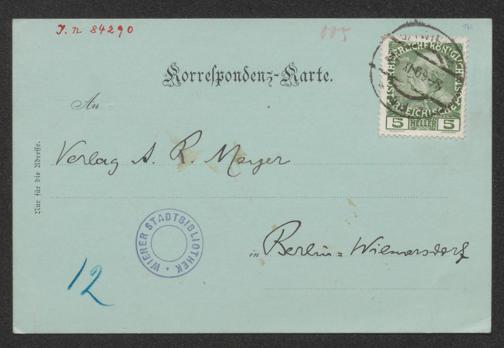 J. n 84290
005
Korrespondenz-Karte.
An
Verlag A. R. Meyer
in Berlin=Wilmersdorf
Nur für die Adresse.
WIENER STADTBIBLIOTHEK
12
5 HELLER 5